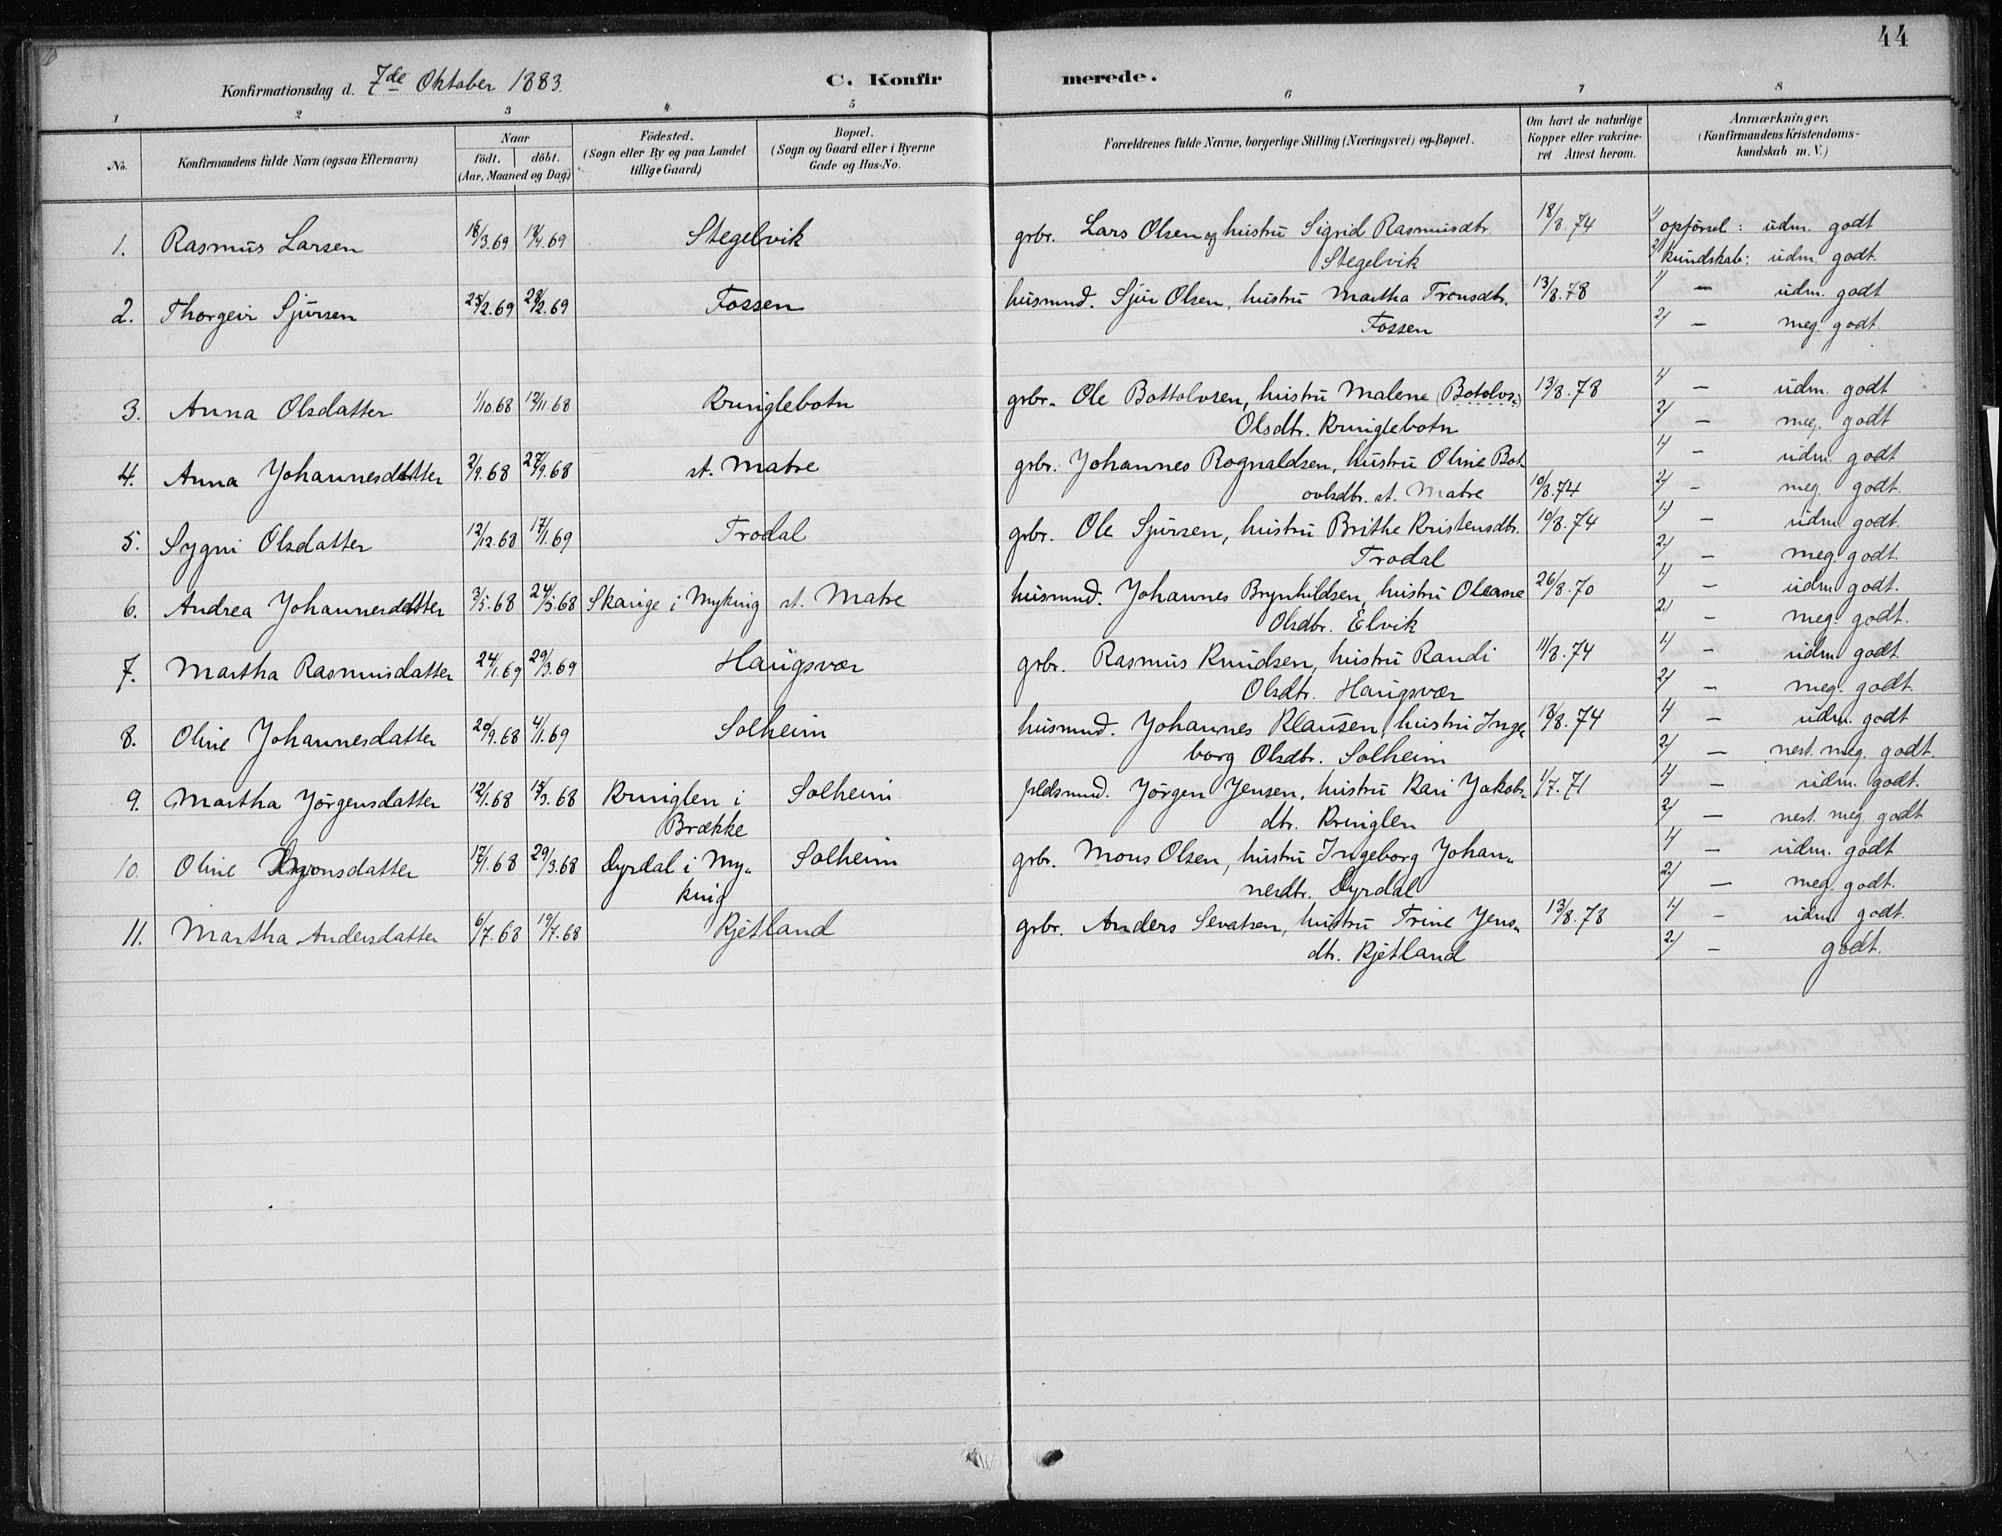 44
Konfirmationsdag d. 7de Oktober 1883. C. Konfir merede.
1 2 3 4 5 6 7 8
No. Konfirmandens fulde Navn (ogsaa Efternavn) Naar født. døbt. (Aar, Maaned og Dag) Fødested. (Sogn eller By og paa Landet tillige Gaard) Bopæl. (Sogn og Gaard eller i Byerne Gade og Hus-No. Forældrenes fulde Navne, borgerlige Stilling (Næringsvei) og Bopæl. Om havt de naturlige Kopper eller vakcineret Attest herom. Anmærkninger. (Konfirmandens Kristendomskundskab m. V.)
1. Rasmus Larsen 18/3.69 /4.69 Stegelvik gbr. Lars Olsen og hustru Sigrid Rasmusdtr. 18/8.74 1/ opførsel: udm. godt
Stegelvik 2/ kundskab: udm. godt.
2. Thorgeir Sjursen 25/2.69 28/2.69 Fossen husmnd. Sjur Olsen, hustru Martha Tronsdtr. 13/8.78 1/ — udm. godt
Fossen 2/ — meg. godt.
3. Anna Olsdatter 1/10.68 12/11.68 Kringlebotn gbr. Ole Bottolvsen, hustru Malene (Botolvs.) 13/8.78 1/ — udm. godt
Olsdtr. Kringlebotn 2/ — meg. godt
4. Anna Johannesdatter 2/9.68 27/9.68 st. Matre gbr. Johannes Rognaldsen, hustru Oline Bot- 1/ — udm. godt
ovlsdtr. st. Matre 10/8.74 2/ — meg. godt.
5. Sygni Olsdatter 12/12.68 17/1.69 Trodal gbr. Ole Sjursen, hustru Brithe Kristensdtr. 10/8.74 1/ — udm. godt.
Trodal 2/ — meg. godt.
6. Andrea Johannesdatter 3/5.68 24/5.68 Skauge i Myking st. Matre husmnd. Johannes Brynhildsen, hustru Oleane 26/8.70 1/ — udm. godt.
Olsdtr. Elvik 2/ — meg. godt.
7. Martha Rasmusdatter 24/1.69 29/3.69 Haugsvær gbr. Rasmus Knudsen, hustru Randi 11/8.74 1/ — udm. godt.
Olsdtr. Haugsvær 2/ — meg. godt.
8. Oline Johannesdatter 20/9.68 4/1.69 Solheim husmnd. Johannes Klausen, hustru Inge- 18/8.74 1/ — udm. godt
borg Olsdtr. Solheim 2/ — nest. meg. godt.
9. Martha Jørgensdatter 12/1.68 15/3.68 Kringlen i Solheim. Jørgen Jensen, hustru Kari Jakobs- 1/7.71 1/ — udm. godt.
Brække dtr. Kringlen 2/ — nest. meg. godt
10. Oline Monsdatter 17/1.68 29/3.68 Dyrdal i My- Solheim gbr. Mons Olsen, hustru Ingeborg Johan- 1/ — udm. godt
king nesdtr. Dyrdal 2/ — meg. godt.
11. Martha Andersdatter 6/7.68 19/7.68 Kjetland gbr. Anders Sevatsen, hustru Trine Jens- 13/8.78 1/ — udm. godt.
dtr. Kjetland 2/ — godt.